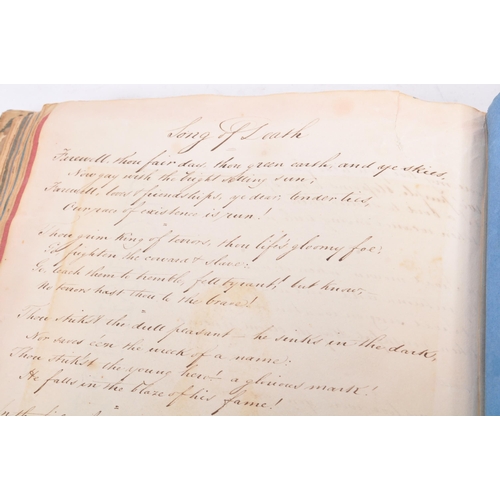 Song Of Death
Farewell, thou fair day, thou green earth, and ye skies,
Now gay with the bright setting sun;
Farewell, loves & friendships, ye dear, tender ties,
Our race of existence is run!
Thou grim King of terrors, thou life's gloomy foe;
Go frighten the coward & slave;
Go, teach them to tremble, fell tyrant! but know,
No terrors hast thou to the brave!
Thou strik'st the dull peasant - he sinks in the dark,
Nor saves e'en the wreck of a name;
Thou strik'st the young hero! a glorious mark!
He falls in the blaze of his fame!
In the